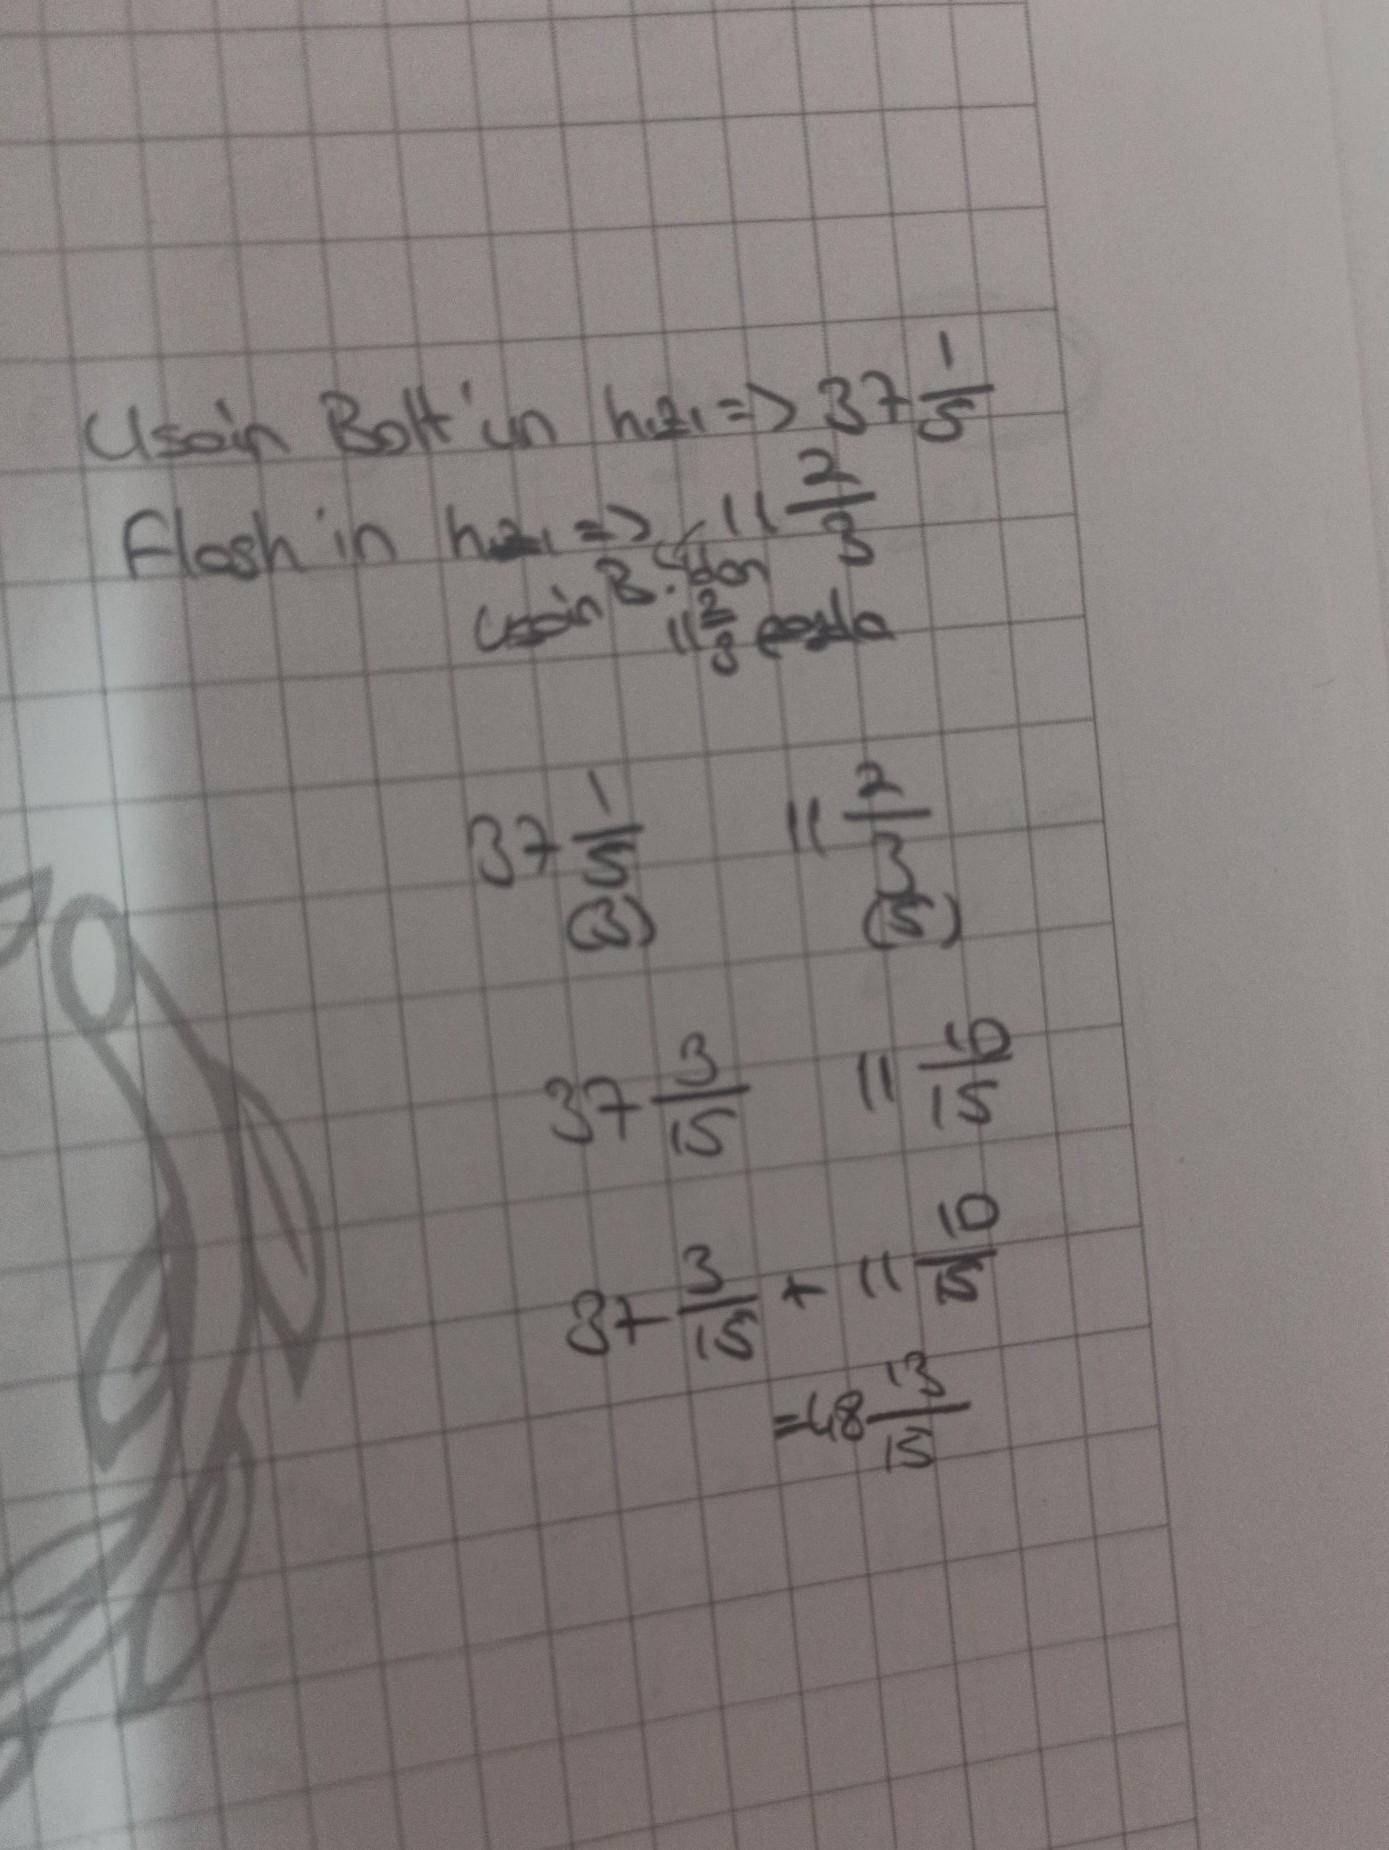 Usain Bolt'un hızı => 37 1/5
Flash'in hızı => 11 2/3
Usain B.'dan
11 2/3 fazla
37 1/5 (3) 11 2/3 (5)
37 3/15 11 10/15
37 3/15 + 11 10/15
=48 13/15